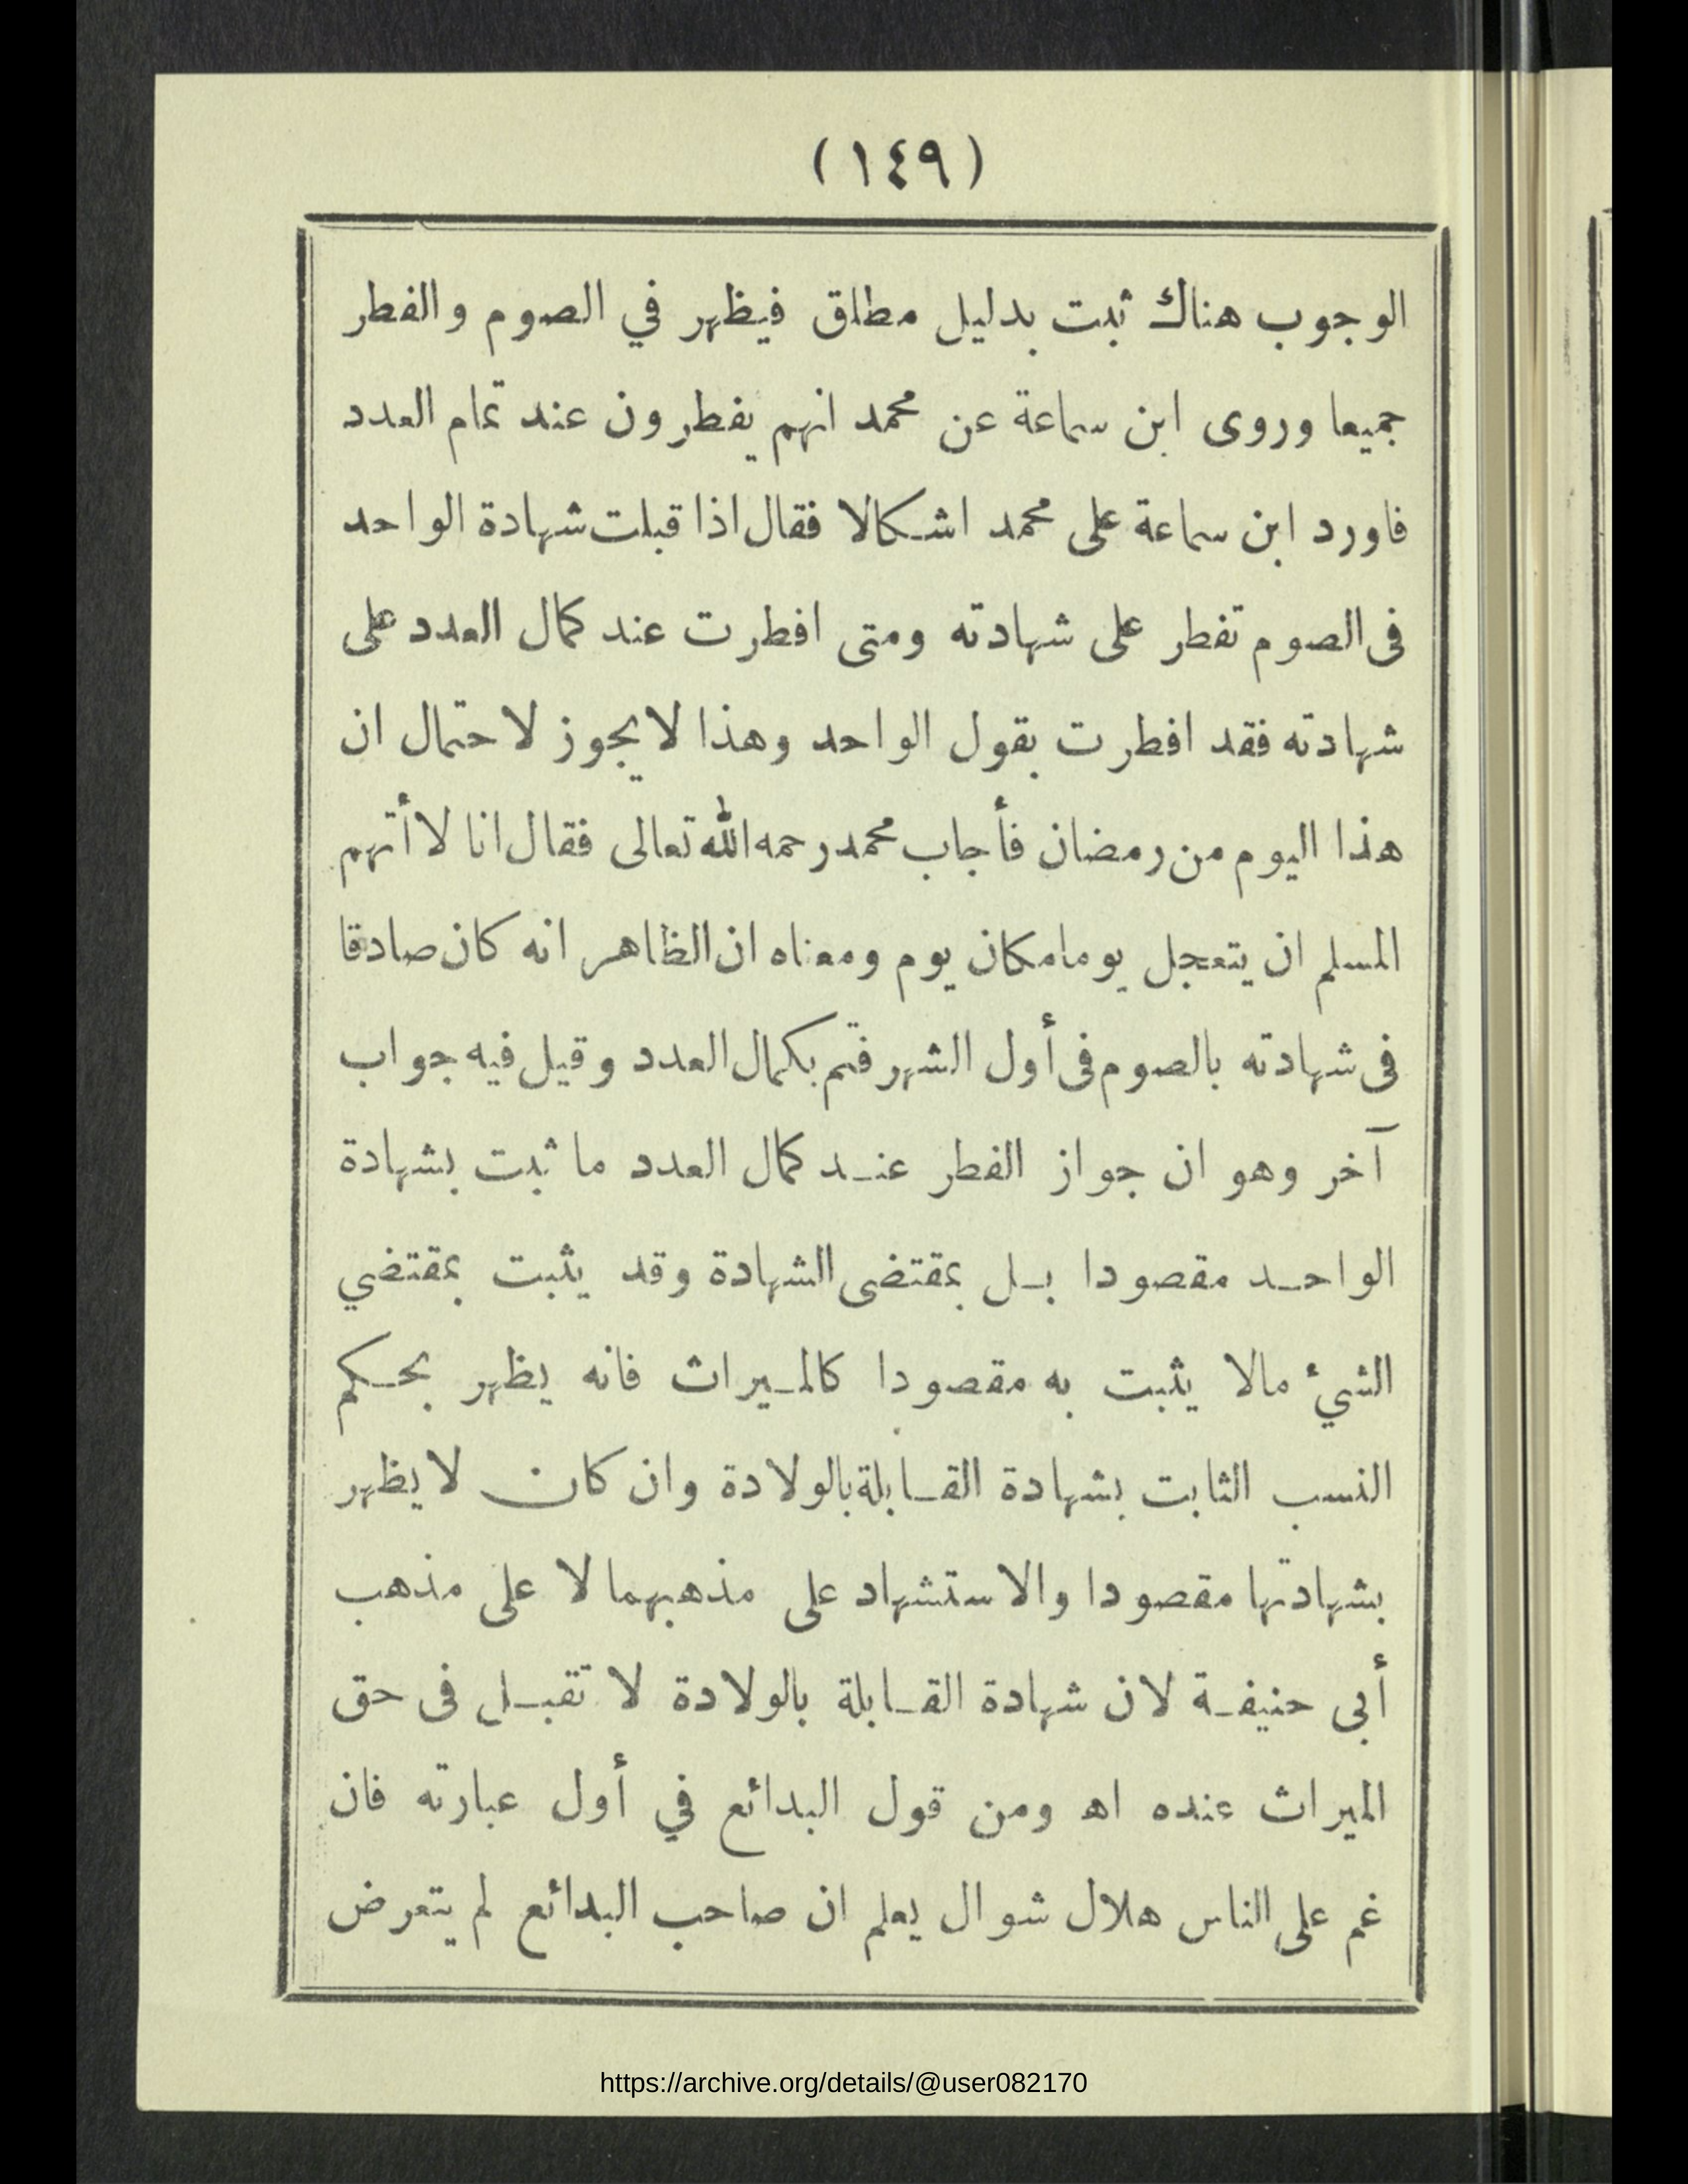 (١٤٩)
الوجوب هناك ثبت بدليل مطلق فيظهر في الصوم والفطر
جميعا وروى ابن سماعة عن محمد انهم يفطرون عند تمام العدد
فاورد ابن سماعة على محمد اشكالا فقال اذا قبلت شهادة الواحد
فى الصوم تفطر على شهادته ومتى افطرت عند كمال العدد على
شهادته فقد افطرت بقول الواحد وهذا لا يجوز لاحتمال ان
هذا اليوم من رمضان فأجاب محمد رحمه الله تعالى فقال انا لا أتهم
المسلم ان يتعجل يوما مكان يوم ومعناه ان الظاهر انه كان صادقا
فى شهادته بالصوم فى أول الشهر فتم بكمال العدد وقيل فيه جواب
آخر وهو ان جواز الفطر عند كمال العدد ما ثبت بشهادة
الواحد مقصودا بل بمقتضى الشهادة وقد يثبت بمقتضي
الشيء مالا يثبت به مقصودا كالميراث فانه يظهر بحكم
النسب الثابت بشهادة القابلة بالولادة وان كان لا يظهر
بشهادتها مقصودا والاستشهاد على مذهبهما لا على مذهب
أبى حنيفة لان شهادة القابلة بالولادة لا تقبل فى حق
الميراث عنده اه ومن قول البدائع في أول عبارته فان
غم على الناس هلال شوال يعلم ان صاحب البدائع لم يتعرض
https://archive.org/details/@user082170